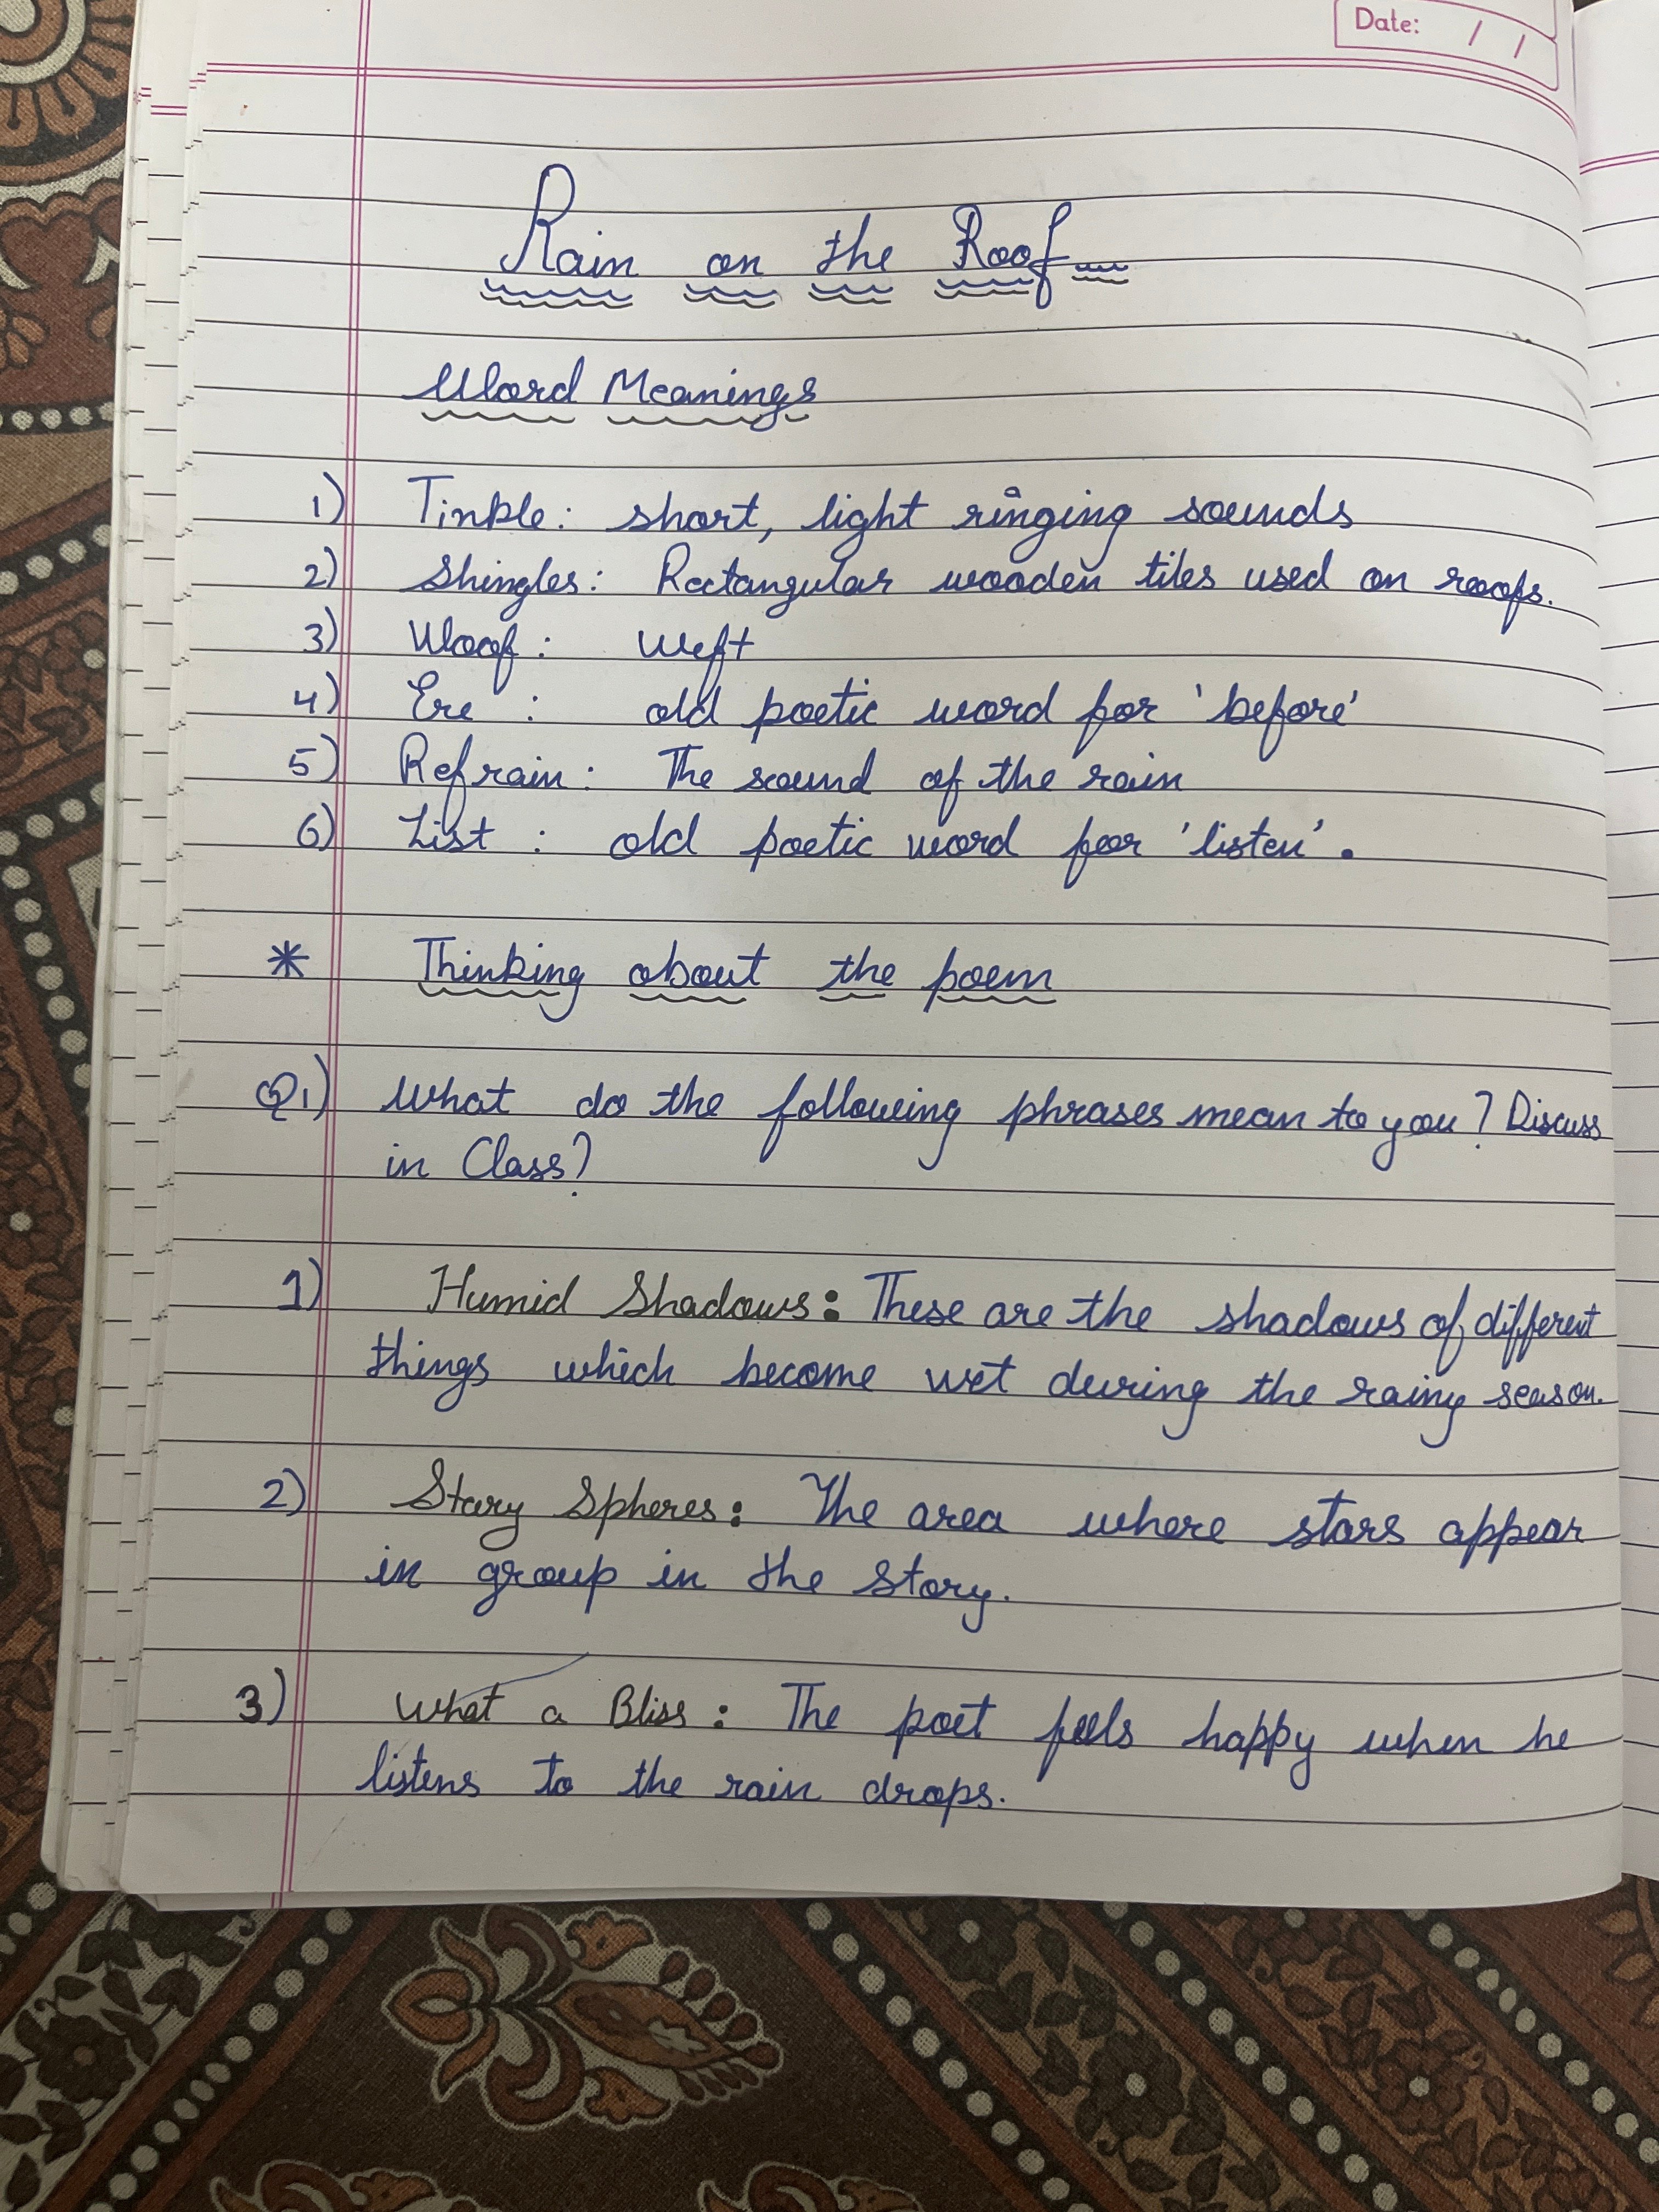 Date: / /
Rain on the Roof
Word Meanings
1) Tinkle: short, light ringing sounds
2) Shingles: Rectangular wooden tiles used on roofs.
3) Woof: Weft
4) Ere : old poetic word for 'before'
5) Refrain: The sound of the rain
6) List : old poetic word for 'listen'.
* Thinking about the poem
Q1) What do the following phrases mean to you? Discuss
in Class?
1) Humid Shadows: These are the shadows of different
things which become wet during the rainy season.
2) Stary Spheres: The area where stars appear
in group in the story.
3) What a Bliss: The poet feels happy when he
listens to the rain drops.